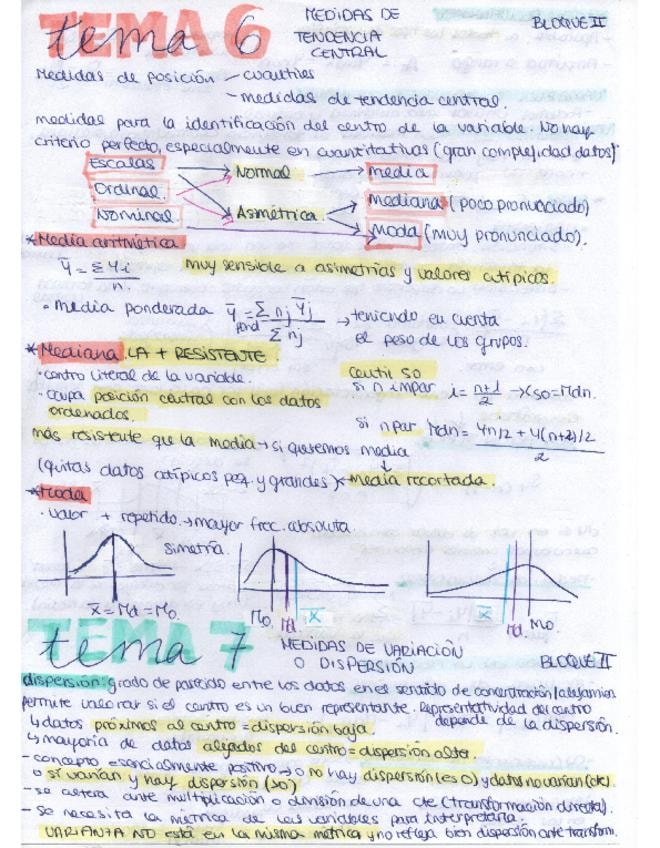 tema 6
MEDIDAS DE
TENDENCIA
CENTRAL
BLOQUE II
Medidas de posición - cuartiles
- medidas de tendencia central.
medidas para la identificación del centro de la variable. No hay
criterio perfecto, especialmente en cuantitativas (gran complejidad datos)
Escalas → Normal → media
Ordinal. → Asimétrica. → Mediana (poco pronunciado)
Nominal → Moda (muy pronunciado).
* Media aritmética
Ȳ = Σ Yi / n.
muy sensible a asimetrías y valores atípicos.
· media ponderada Ȳpond = Σ nj Ȳj / Σ nj → teniendo en cuenta
el peso de los grupos.
* Mediana. LA + RESISTENTE.
· centro literal de la variable.
· ocupa posición central con los datos
ordenados.
Centil 50
si n impar i = n+1 / 2 → X50 = Mdn.
si n par Mdn = Yn/2 + Y(n+2)/2 / 2
más resistente que la media → si queremos media
(quitas datos atípicos peq. y grandes) ← Media recortada.
* Moda
· valor + repetido. → mayor frec. absoluta.
simetría.
X̄ = Md = Mo.
Mo. Md X̄
X̄ Md. Mo.
tema 7
MEDIDAS DE VARIACIÓN
O DISPERSIÓN
BLOQUE II
dispersión: grado de parecido entre los datos en el sentido de concentración/alejamien
permite valorar si el centro es un buen representante. Representatividad del centro
depende de la dispersión.
↳ datos próximos al centro = dispersión baja.
↳ mayoría de datos alejados del centro = dispersión alta.
- concepto esencialmente positivo → o no hay dispersión (es 0) y datos no varían (cte).
o si varían y hay dispersión (>0)
- se altera ante multiplicación o división de una cte (transformación directa).
- se necesita la métrica de las variables para interpretarla
VARIANZA NO está en la misma métrica y no refleja bien dispersión ante transform.